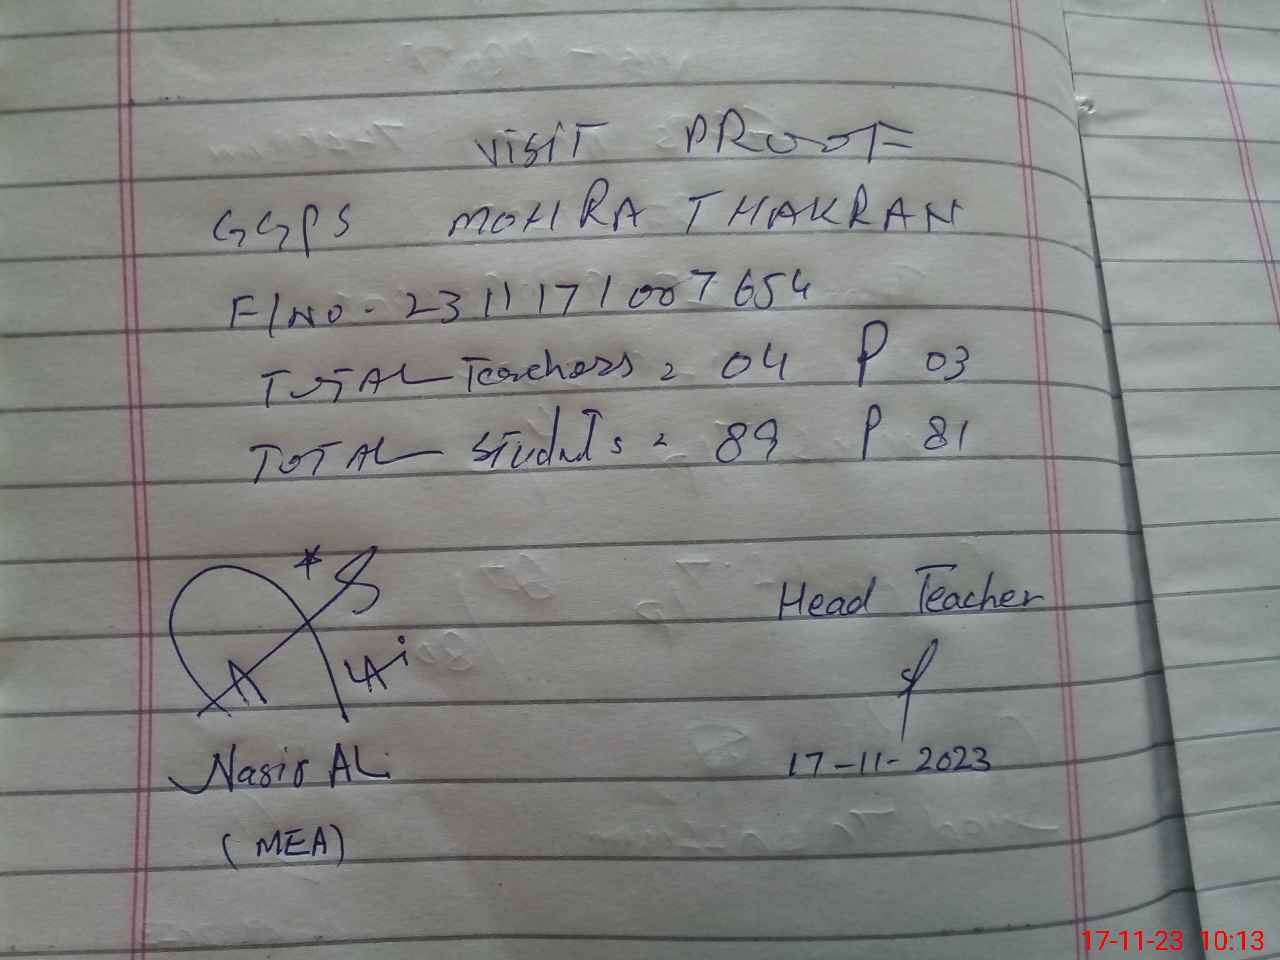 VISIT PROOF
GGPS MOHRA THAKRAN
F/NO. 2311171007654
TOTAL Teachers = 04 P 03
TOTAL Students = 89 P 81
Head Teacher
Nasir ALi
17-11-2023
(MEA)
17-11-23 10:13